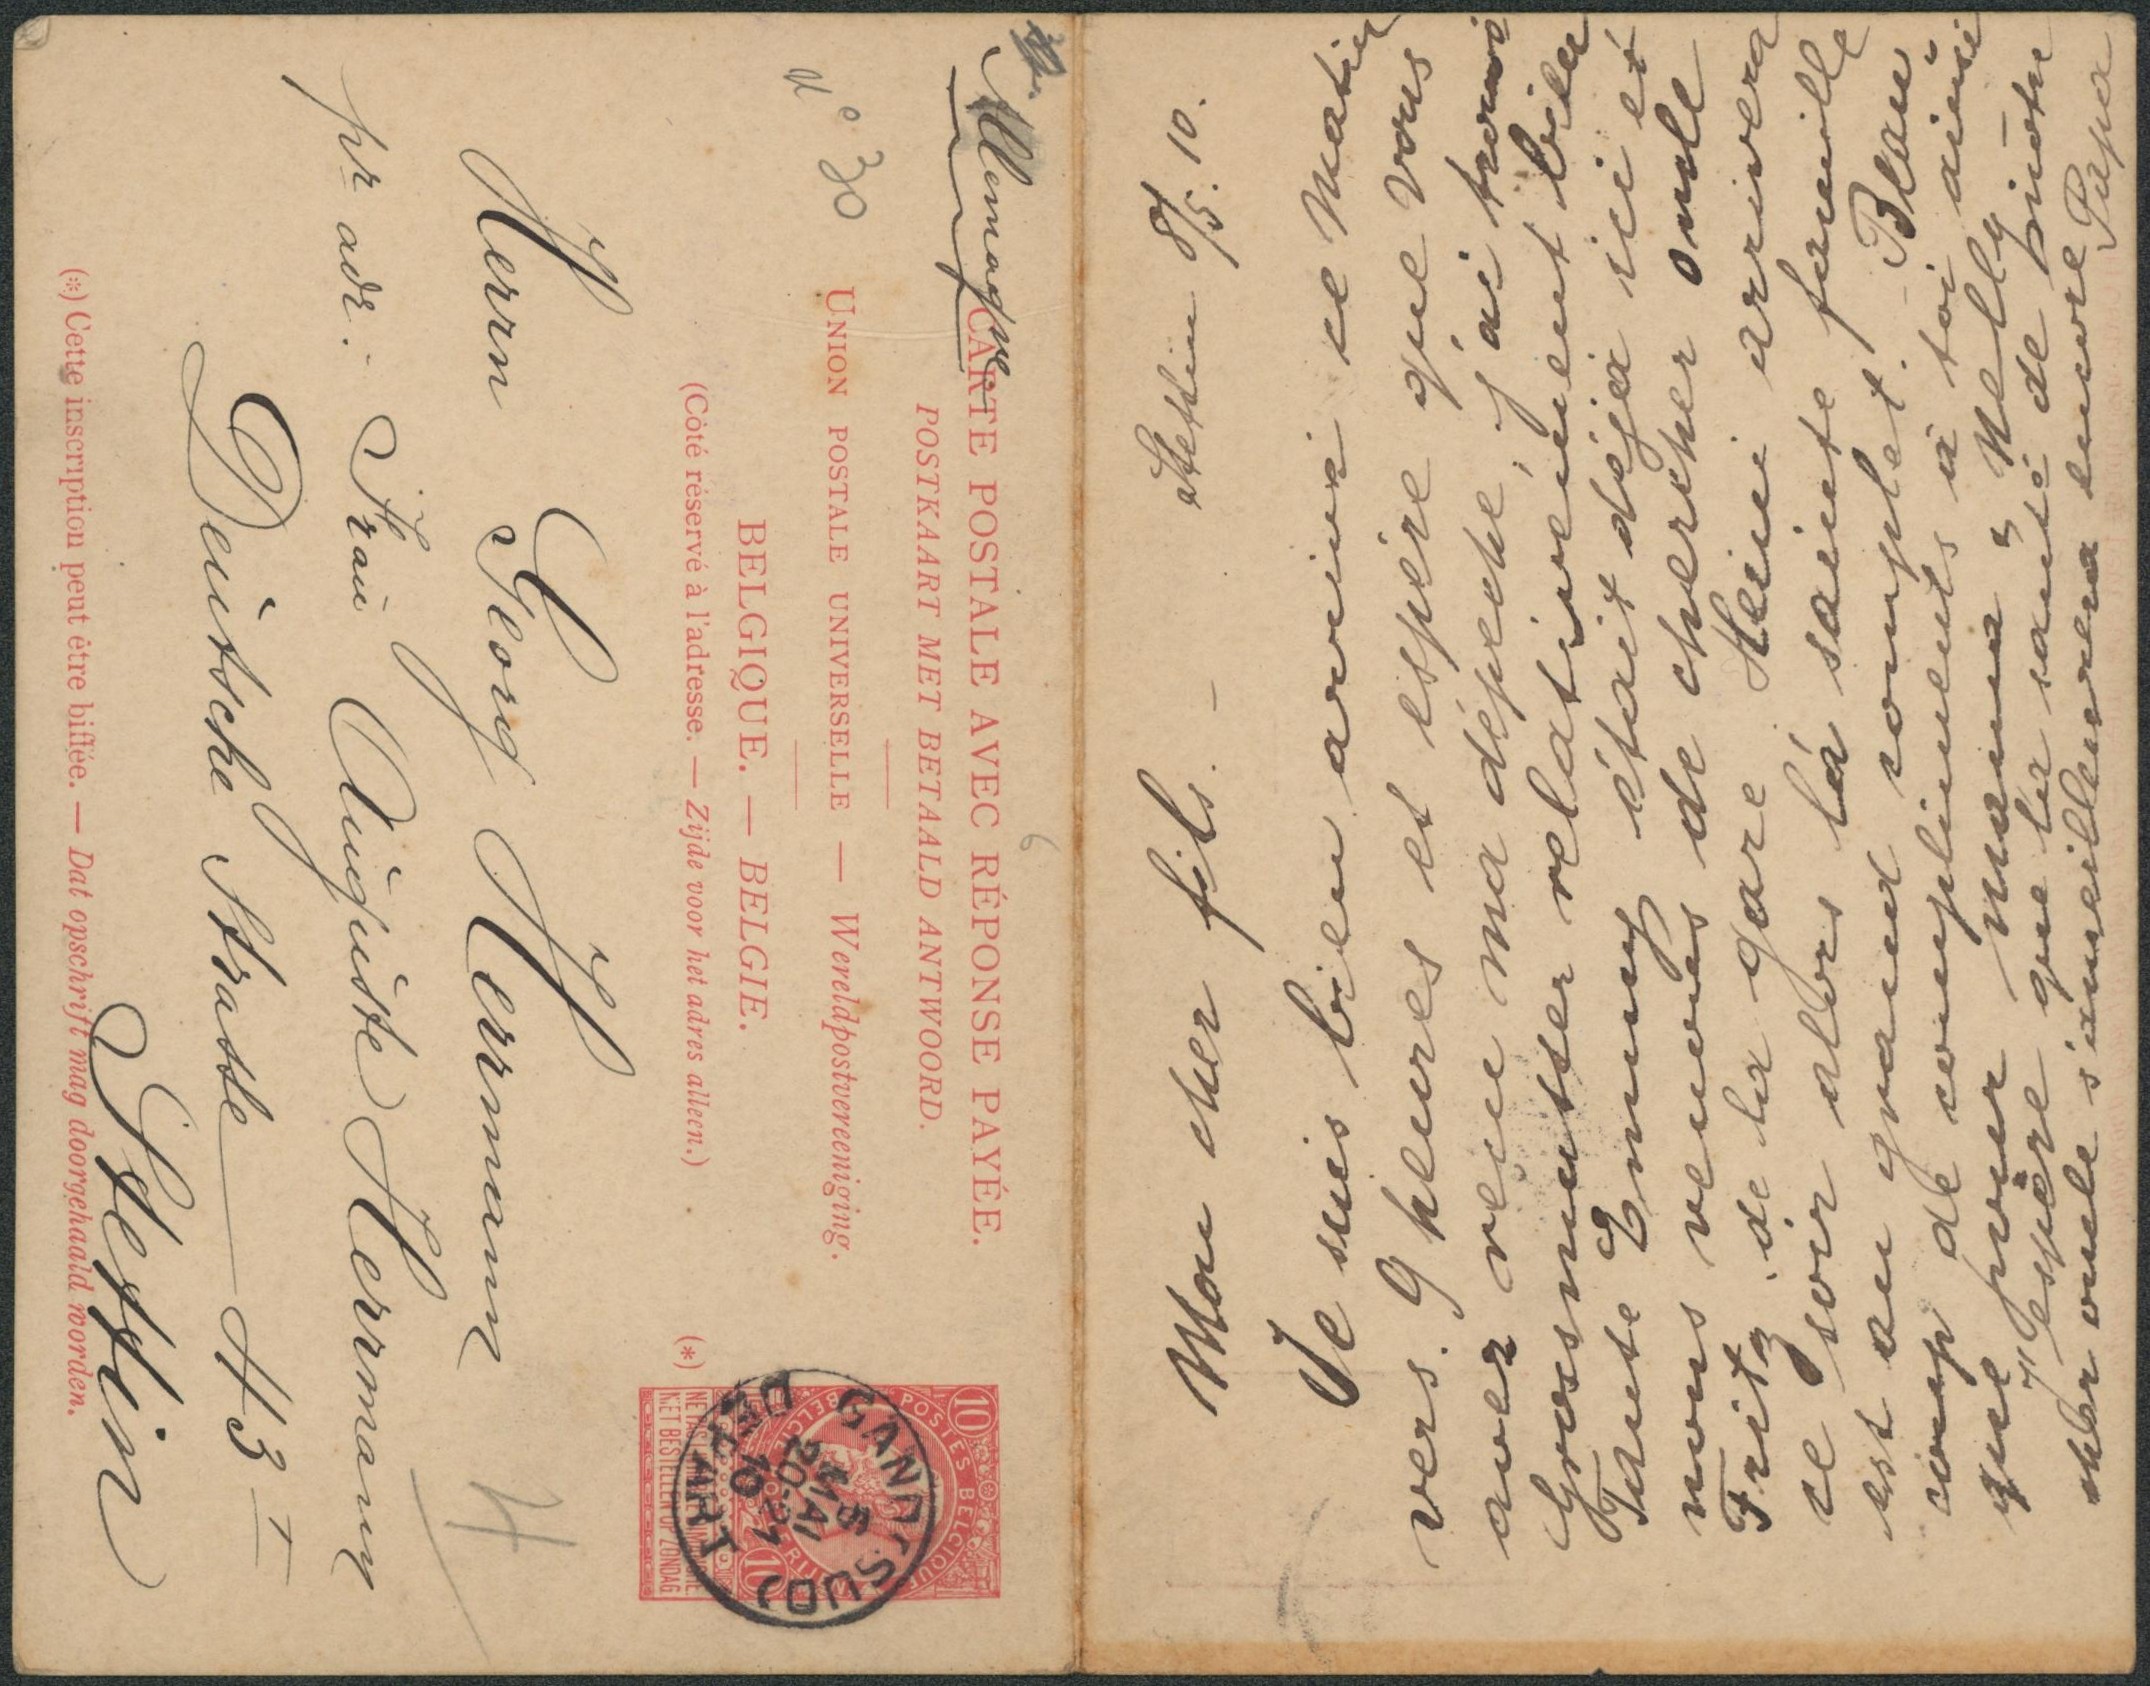 Allemagne.
CARTE POSTALE AVEC RÉPONSE PAYÉE.
POSTKAART MET BETAALD ANTWOORD.
UNION POSTALE UNIVERSELLE — Wereldpostvereeniging.
BELGIQUE. — BELGIE.
(Côté réservé à l'adresse. — Zijde voor het adres alleen.)
(*)
Herrn Georg Herrmann
pr adr. Frau Auguste Herrmann
Deutsche Strasse 43 I
Stettin
(*) Cette inscription peut être biffée. — Dat opschrift mag doorgehaald worden.
30
POSTES BELGIQUE
10
NE PAS LIVRER LE DIMANCHE
NIET BESTELLEN OP ZONDAG
GAND (SUD)
5
MAI
20-21
10
DÉPART
Stettin 8/5. 10.
Mon cher fils. -
Je suis bien arrivé ce matin
vers 9 heures et espère que vous
avez reçu ma dépeche, j'ai trouvé
Grosmutter relativement bien
Tante Emmy était déjà ici et
nous venons de chercher oncle
Fritz de la gare Heini arrivera
ce soir alors la sainte famille
est au grand complet. - Beau-
coup de compliments à toi ainsi
que pour mama & Nelly -
J'espère que la santé de
cher oncle s'ameilleurera encore
Papa